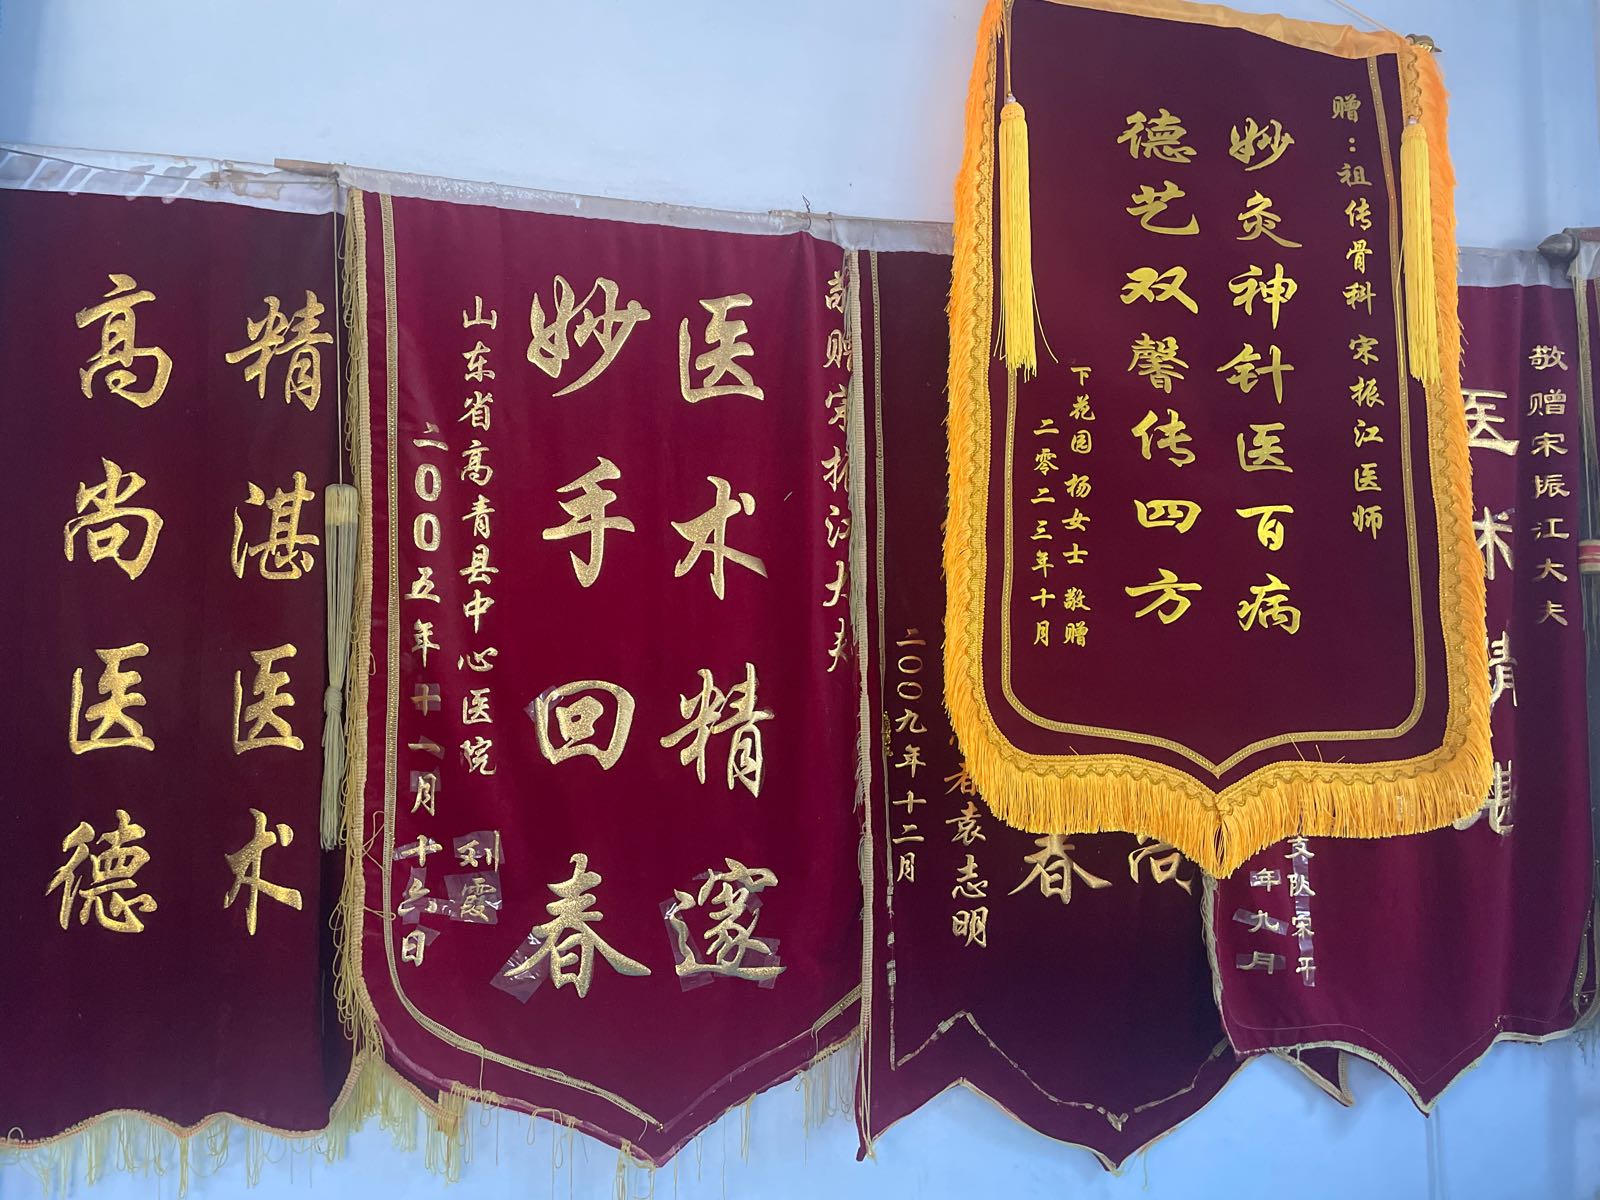 精湛医术
高尚医德
敬赠宋振江大夫
医术精邃
妙手回春
山东省高青县中心医院
刘霞
二00五年十一月十六日
尚
春
者袁志明
二00九年十二月
赠：祖传骨科 宋振江医师
妙灸神针医百病
德艺双馨传四方
下花园 杨女士 敬赠
二零二三年十月
敬赠宋振江大夫
医术精湛
支队荣平
年九月